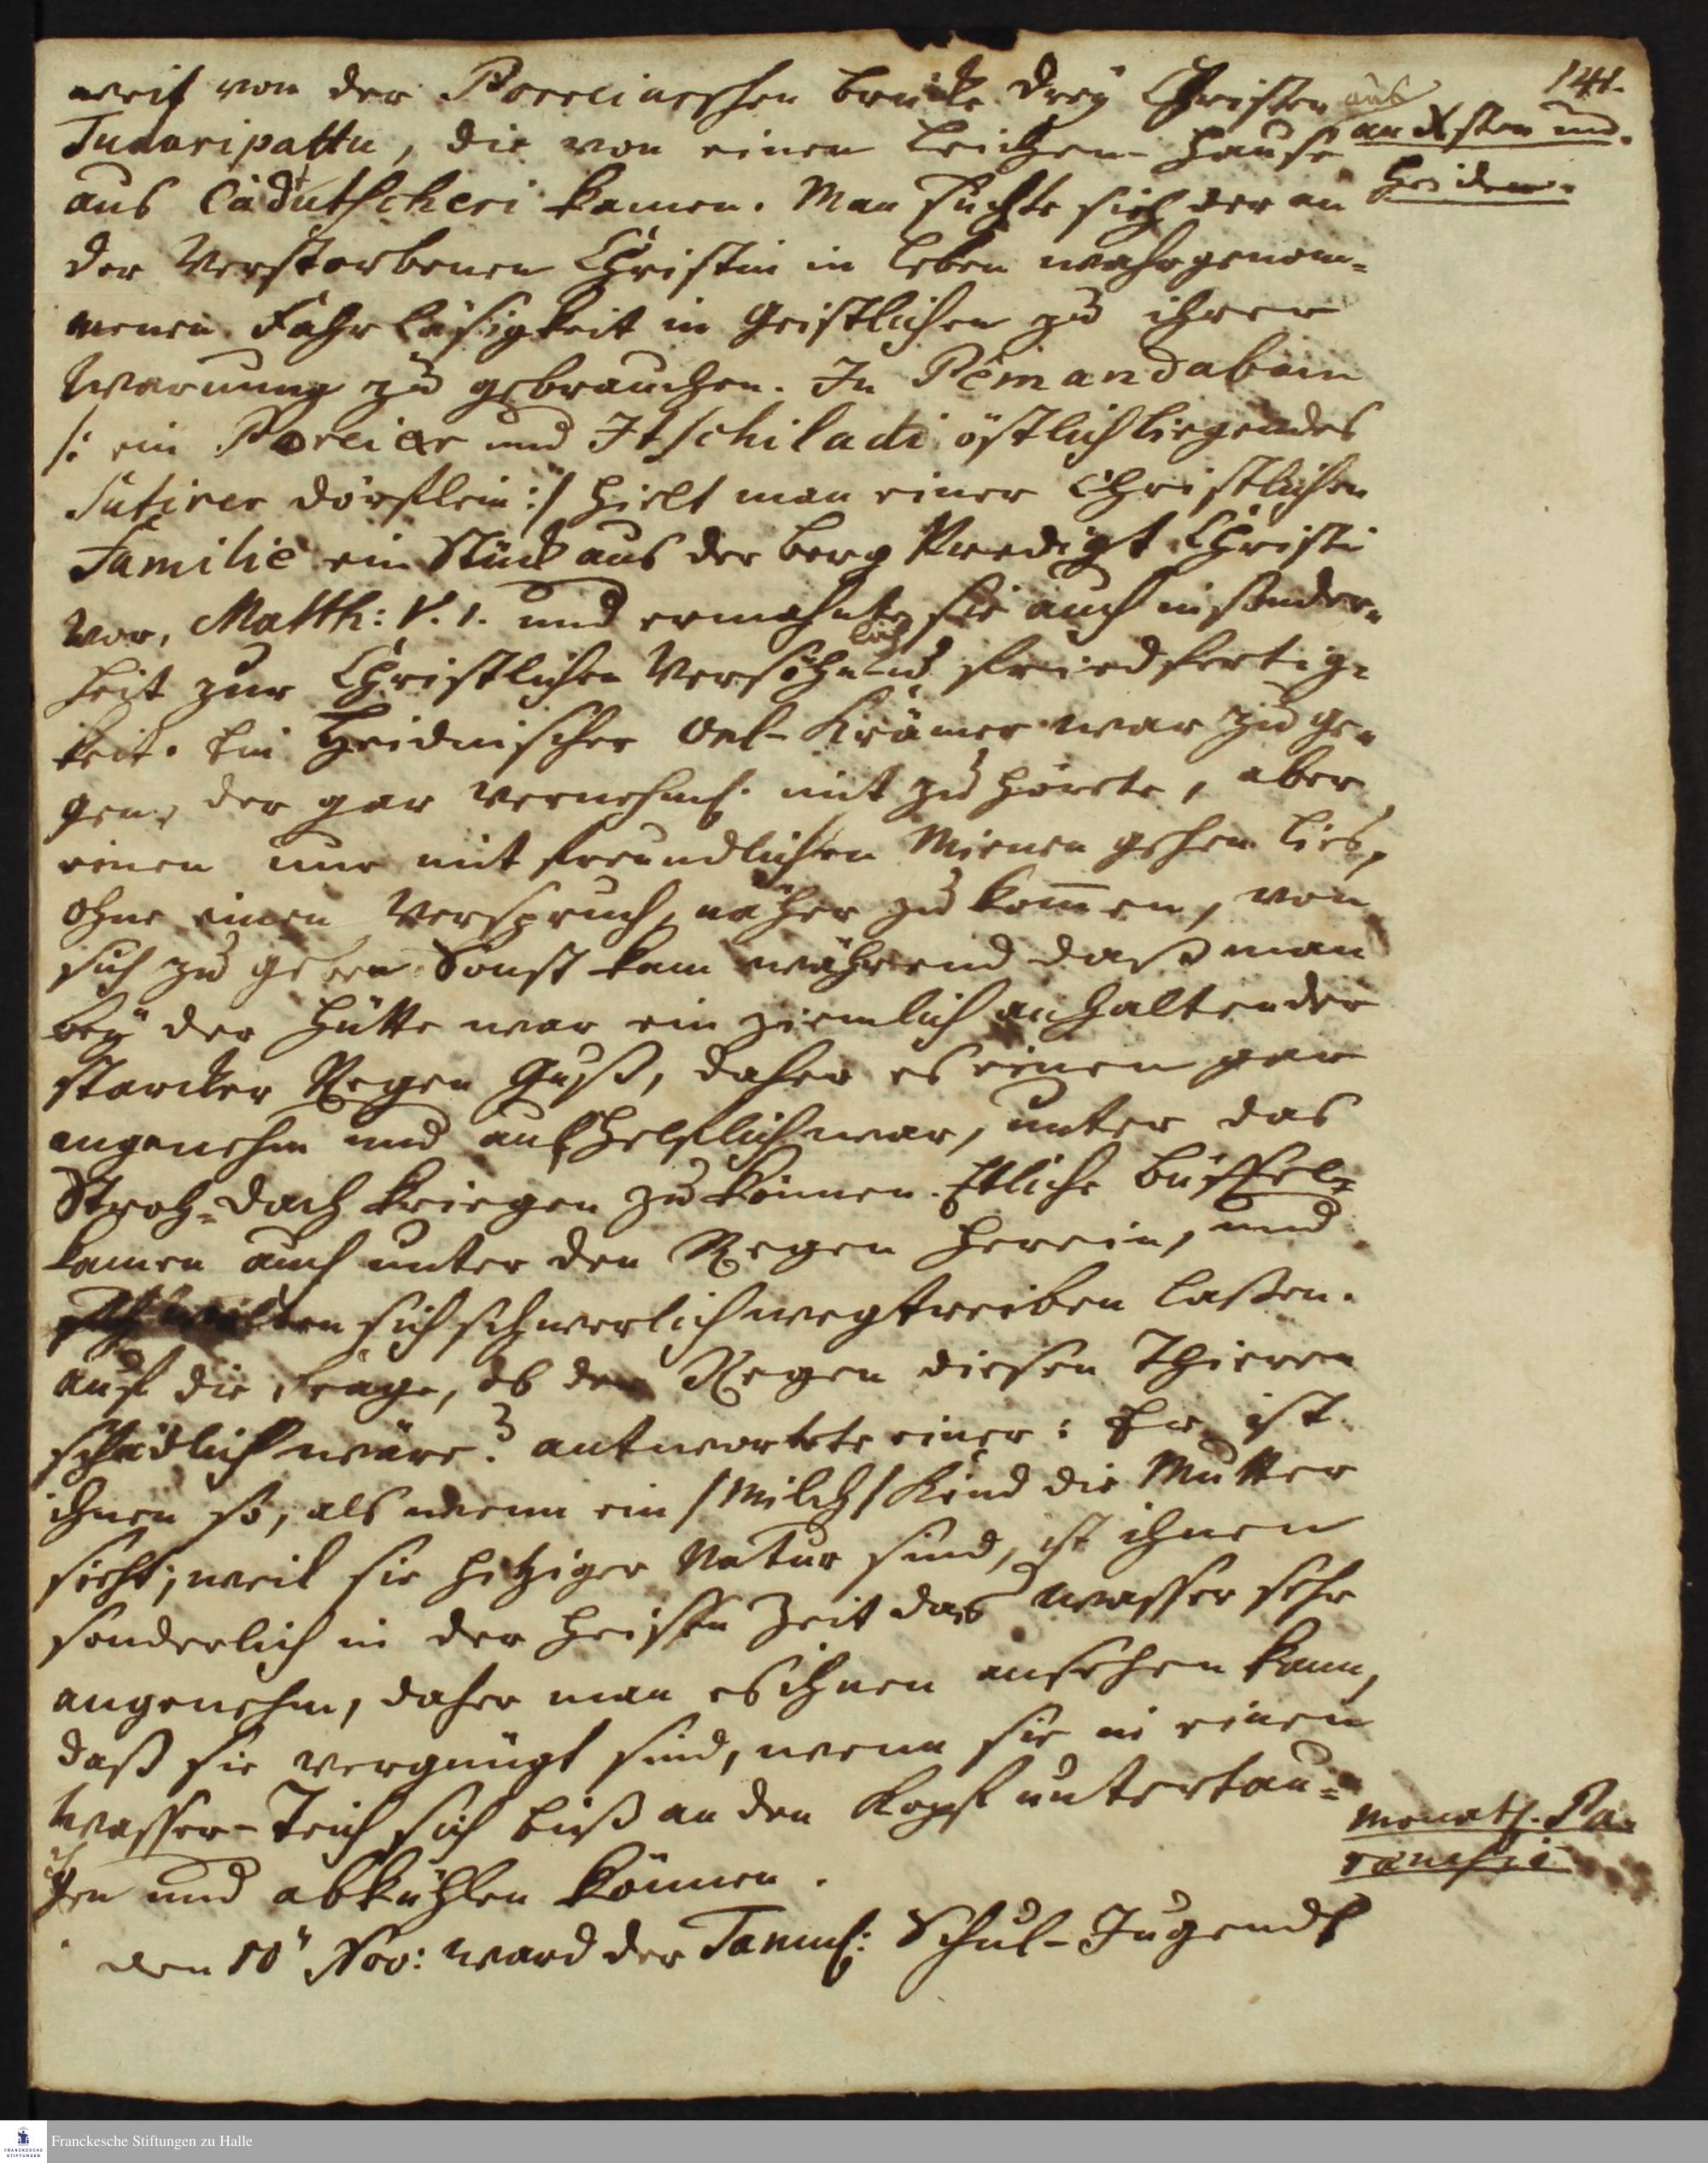 141.
weit von der Porreiarschen brücke drey Christen aus
Tudaripattu, die von einen Leichen-Hause
an Xsten und
Heiden.
aus Cadutscheri kamen. Man suchte sich der an
der Verstorbenen Christin in Leben wahrgenom=
menen Fahrläsigkeit in Geistlichen zu ihrer
Warnung zu gebrauchen. In Pemandabam
/: ein Poreier und Itschiladi östlich liegendes
Sutirer dörflein :/ hielt man einer Christlichen
Familie ein Stück aus der berg Predigt Christi
vor, Matth: V. 1. und ermahnte sie auch insonder=
heit zur Christlichen Versöhnlich u. friedfertig=
keit. Ein Heidnischer Oel-Krämer war zu ge=
gen, der gar vernehml. mit zu hörete, aber
einen nur mit freundlichen Mienen gehen lies,
ohne einen Verspruch, näher zu kom̅en, von
sich zu geben. Sonst kam während daß man
bey der Hütte war ein ziemlich anhaltender
starcker Regen Guß, daher es einen gar
angenehm und aufhelflich war, unter das
Stroh=dach kriegen zu können. Etliche Büffel=
kamen auch unter den Regen herein, und
wolten sich schwerlich wegtreiben laßen.
Auf die Frage, ob der Regen diesen Thieren
schädlich wäre? antwortete einer: Er ist
ihnen so, als wenn ein /Milch/ Kind die Mutter
sieht; weil sie hitziger Natur sind, ist ihnen
sonderlich in der heissen Zeit das Wasser sehr
angenehm, daher man es ihnen ansehen kann,
daß sie vergnügt sind, wenn sie in einen
Wasser-Teich sich biß an den Kopf untertau=
chen und abkühlen können.
Monath. Pa=
raenesis
den 10" Nov: ward der Tamul: Schul-Jugendt
Franckesche Stiftungen zu Halle
FRANCKESCHE
STIFTUNGEN